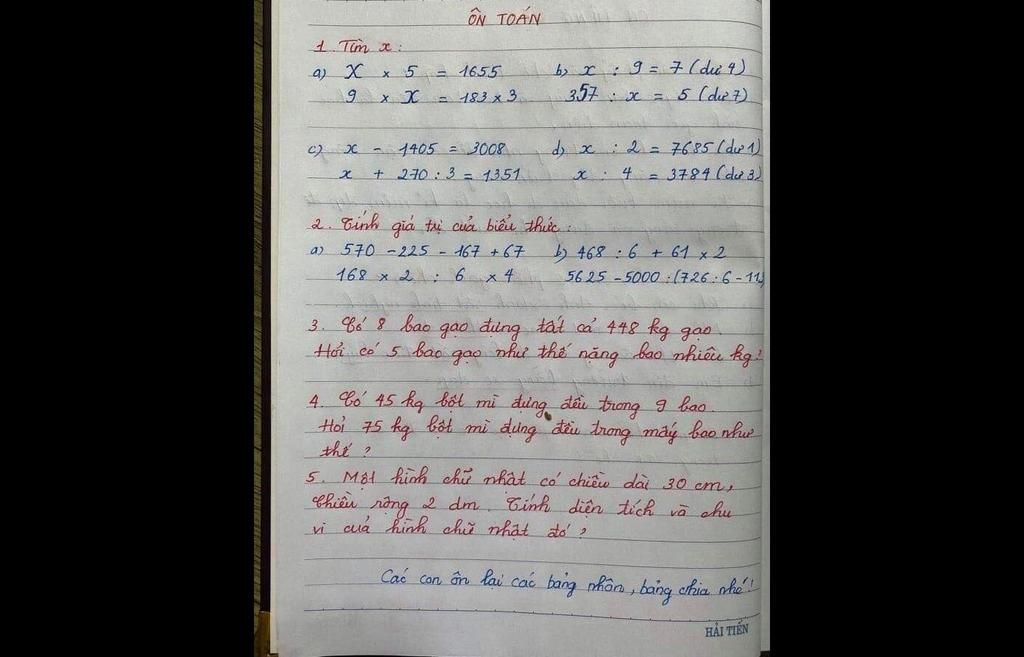 ÔN TOÁN
1. Tìm x:
a) X × 5 = 1655 b) x : 9 = 7 (dư 4)
9 × X = 183 × 3 357 : x = 5 (dư 7)
c) x - 1405 = 3008 d) x : 2 = 7685 (dư 1)
x + 270 : 3 = 1351 x : 4 = 3784 (dư 3)
2. Tính giá trị của biểu thức:
a) 570 - 225 - 167 + 67 b) 468 : 6 + 61 × 2
168 × 2 : 6 × 4 5625 - 5000 : (726 : 6 - 11)
3. Có 8 bao gạo đựng tất cả 448 kg gạo.
Hỏi có 5 bao gạo như thế nặng bao nhiêu kg?
4. Có 45 kg bột mì đựng đều trong 9 bao.
Hỏi 75 kg bột mì đựng đều trong mấy bao như
thế ?
5. Một hình chữ nhật có chiều dài 30 cm,
chiều rộng 2 dm. Tính diện tích và chu
vi của hình chữ nhật đó ?
Các con ôn lại các bảng nhân, bảng chia nhé!
HẢI TIẾN